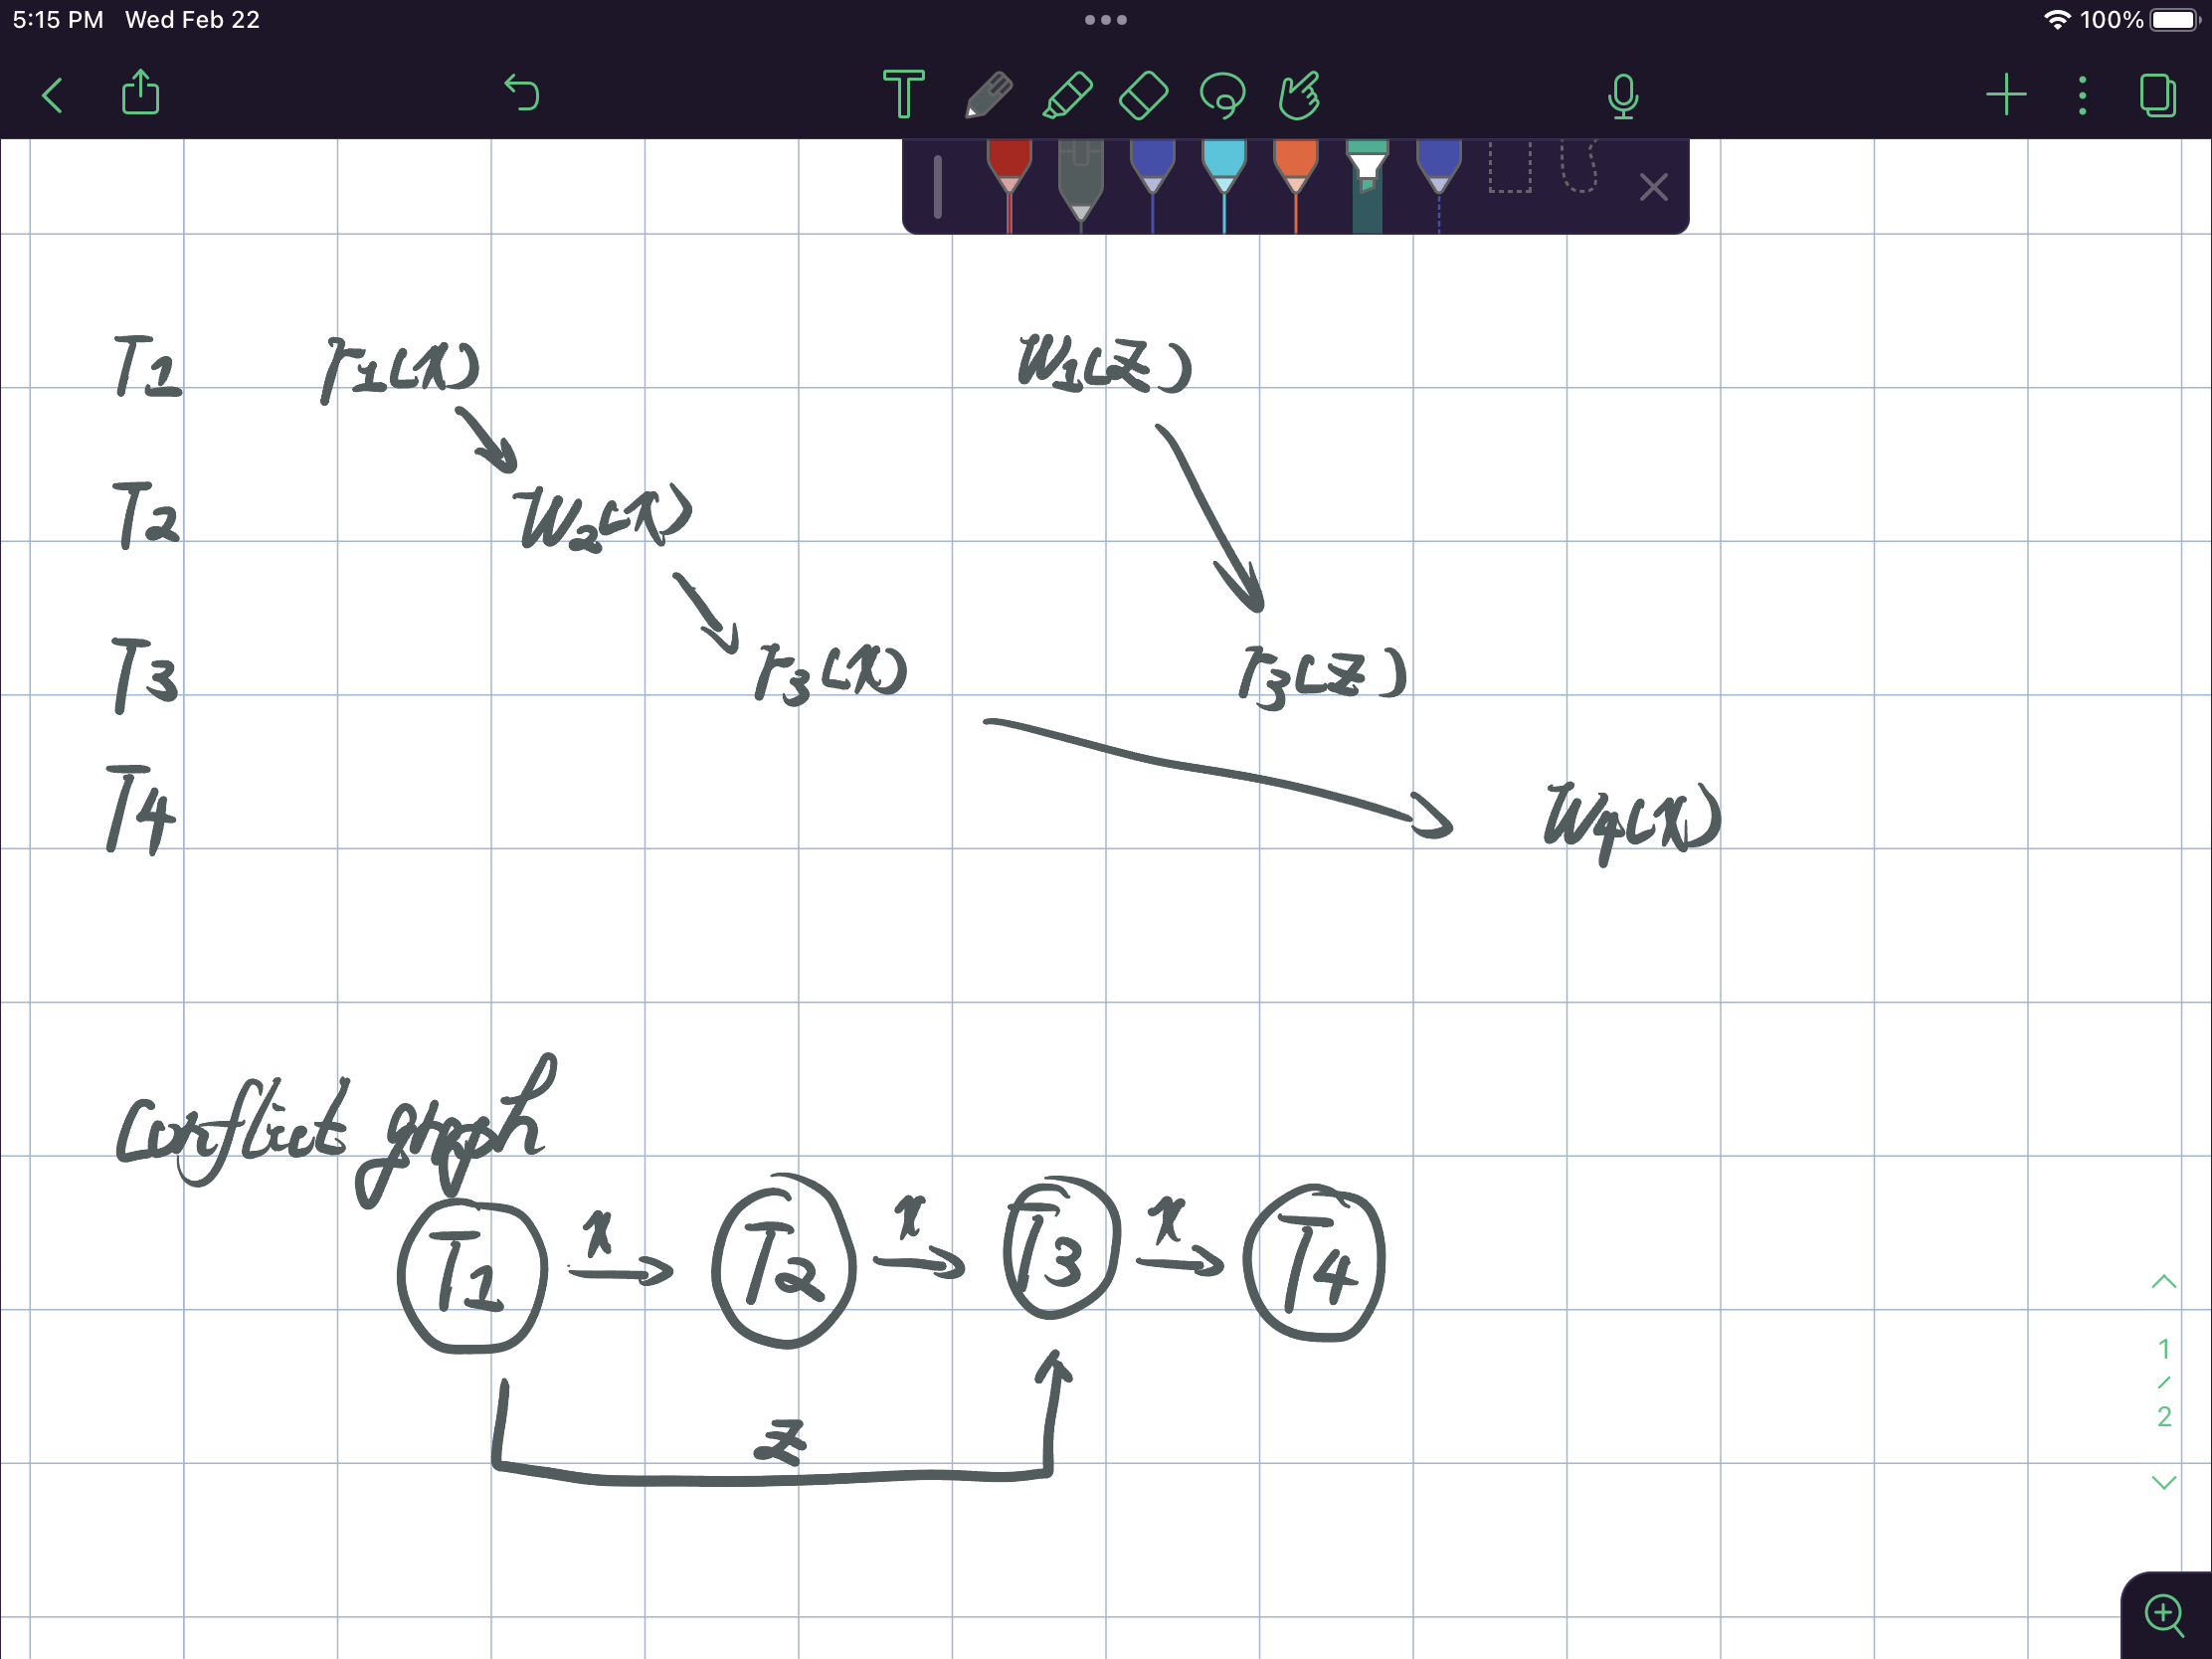 5:15 PM Wed Feb 22
100%
T
T1 r1(x) W1(z)
T2 W2(x)
T3 r3(x) r3(z)
T4 W4(x)
Conflict graph
T1 x T2 x T3 x T4
z
1
/
2